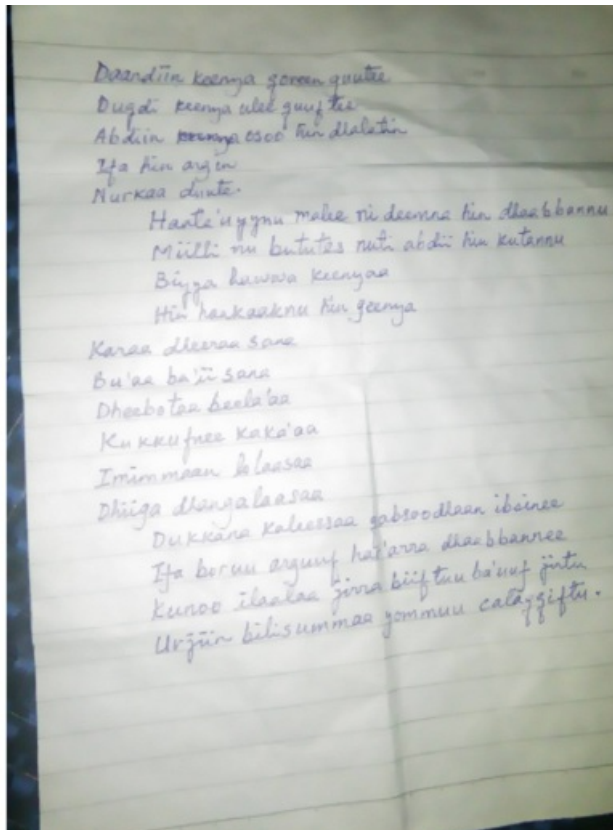 Daandiin keenya qoreen guutee
Dugdi keenya ulee guuftee
Abdiin esoo hin dhalatin
Ifa hin argin
Nurkaa duute.
Haata'uyynu malee ni deemna hin dhaabbannu
Miilli nu bututes nuti abdii hin kutannu
Biyya hawwa keenyaa
Hin haakaaknu hin geenya
Karaa dheeraa sana
Bu'aa ba'ii sana
Dheebotaa beela'aa
Kukkufnee kaka'aa
Imimmaan lolaasaa
Dhiiga dhangalaasaa
Dukkana kaleessaa qabsoodhaan ibsinee
Ifa boruu arguuf har'arra dhaabbannee
Kunoo ilaalaa jirra biiftuu ba'uuf jirtu
Urjiin bilisummaa yommuu calaqqiftu.